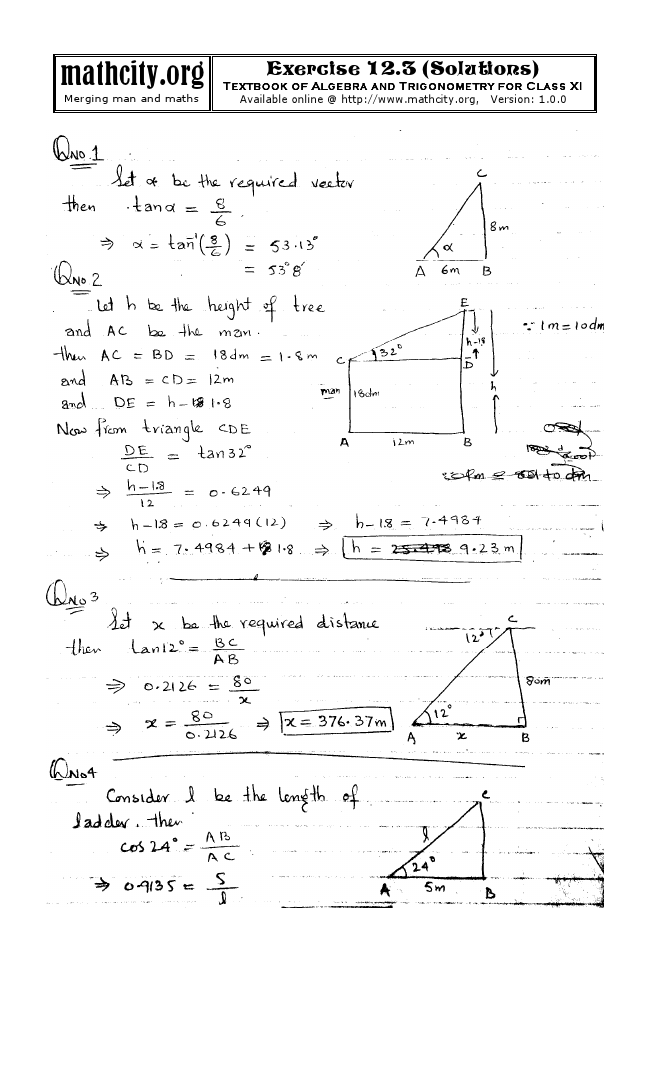 mathcity.org
Merging man and maths
Exercise 12.3 (Solutions)
TEXTBOOK OF ALGEBRA AND TRIGONOMETRY FOR CLASS XI
Available online @ http://www.mathcity.org, Version: 1.0.0
QNO.1
Let α be the required vector
then tanα = 8/6
⇒ α = tan⁻¹(8/6) = 53.13°
= 53°8′
C
8m
α
A 6m B
QNO 2
Let h be the height of tree
and AC be the man.
then AC = BD = 18dm = 1.8m
and AB = CD = 12m
and DE = h-1.8
Now from triangle CDE
DE/CD = tan32°
⇒ h-1.8/12 = 0.6249
⇒ h-1.8 = 0.6249(12) ⇒ h-1.8 = 7.4984
⇒ h = 7.4984 + 1.8 ⇒ h = 9.23m
E
∵ 1m = 10dm
h-18
32°
C
D
h
man
18dm
A 12m B
QNO 3
Let x be the required distance
then tan12° = BC/AB
⇒ 0.2126 = 80/x
⇒ x = 80/0.2126 ⇒ x = 376.37m
C
12°
80m
12°
A x B
QNO4
Consider l be the length of
ladder. then
cos24° = AB/AC
⇒ 0.9135 = 5/l
C
l
24°
A 5m B